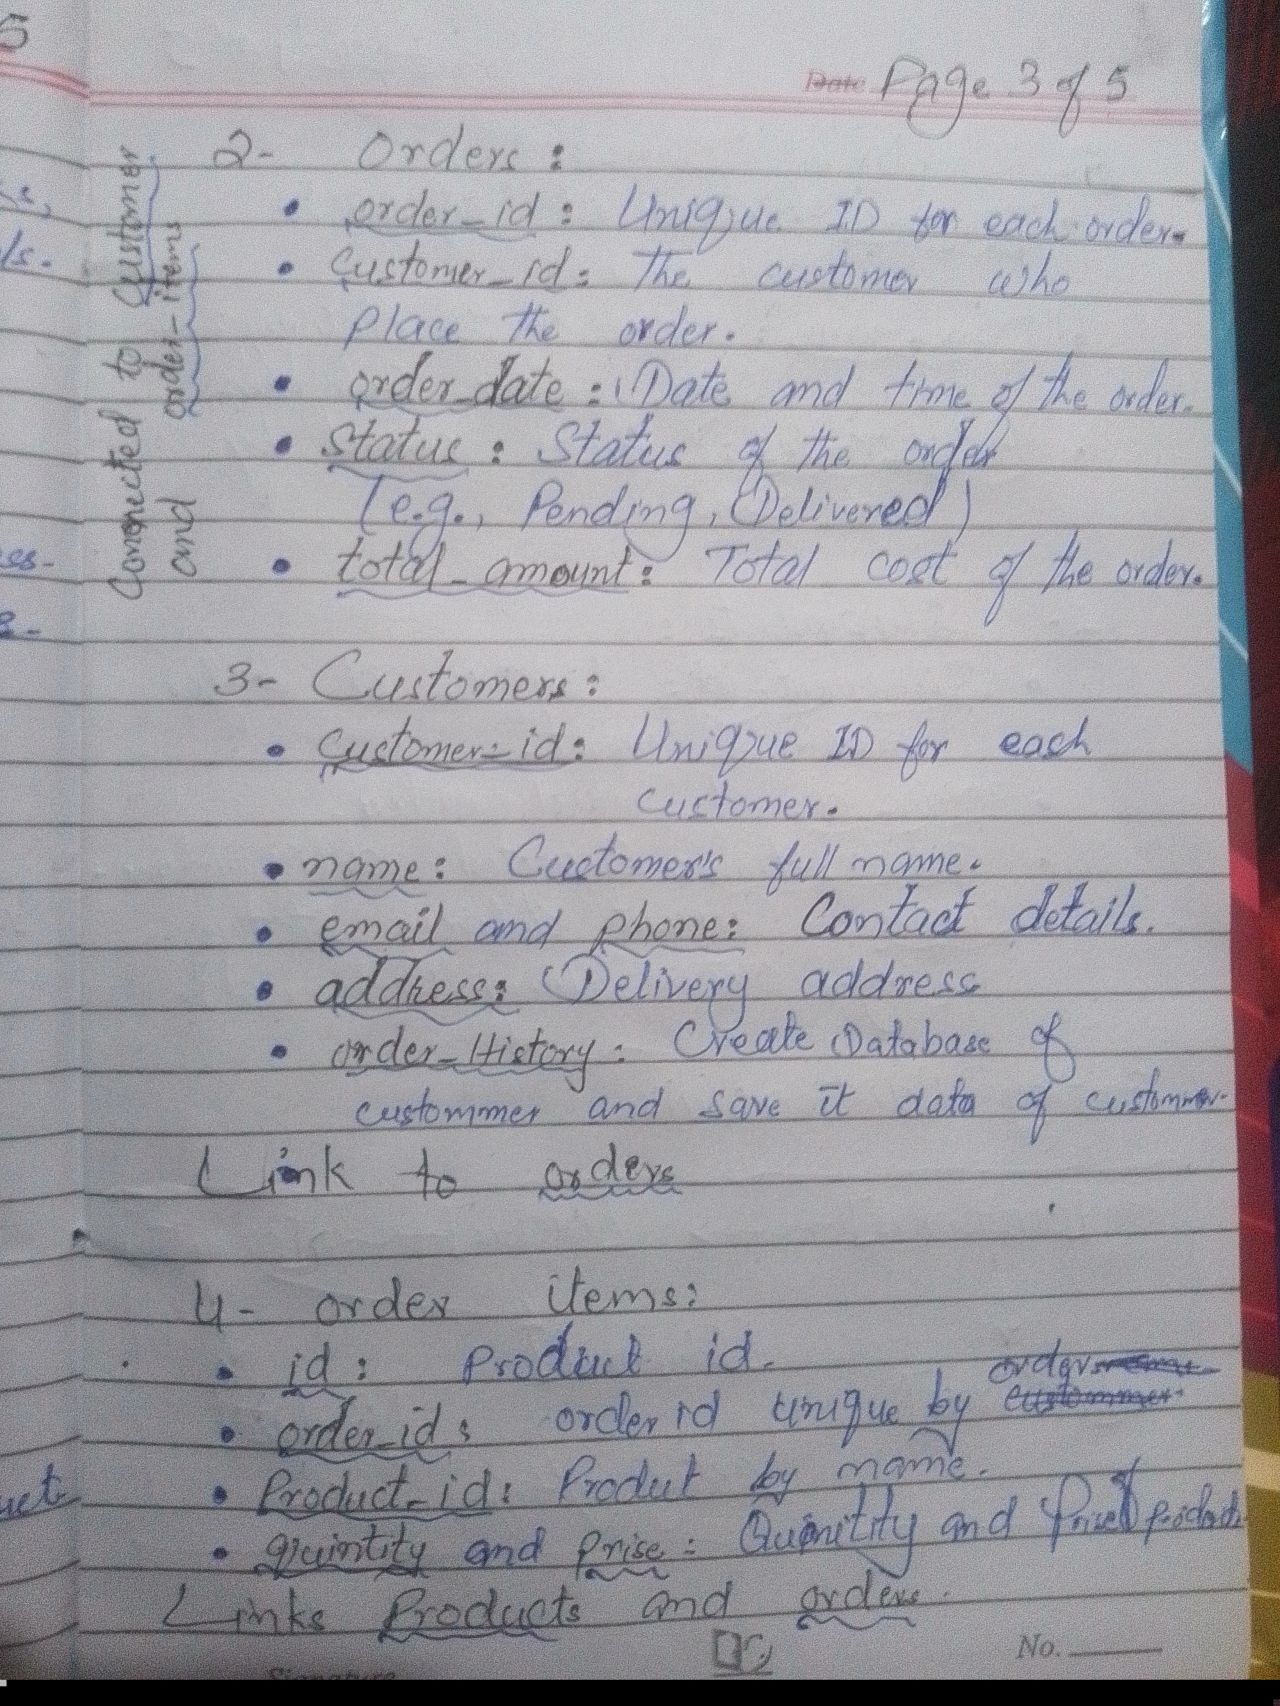 5
Date Page 3 of 5
Connected to Customer
and order-items
2- Orders:
• order_id: Unique ID for each order.
• Customer_id: The customer who
place the order.
• order_date: Date and time of the order.
• Status: Status of the order
(e.g., Pending, Delivered)
• total_amount: Total cost of the order.
3- Customers:
• Customer_id: Unique ID for each
customer.
• name: Customer's full name.
• email and phone: Contact details.
• address: Delivery address
• order_History: Create Database of
custommer and save it data of custommer.
Link to orders
4- order items:
• id: Product id.
• order_id: order id unique by order
• Product_id: Product by name.
• quintity and prise: Quanitity and Prise of product
Links Products and orders.
No.